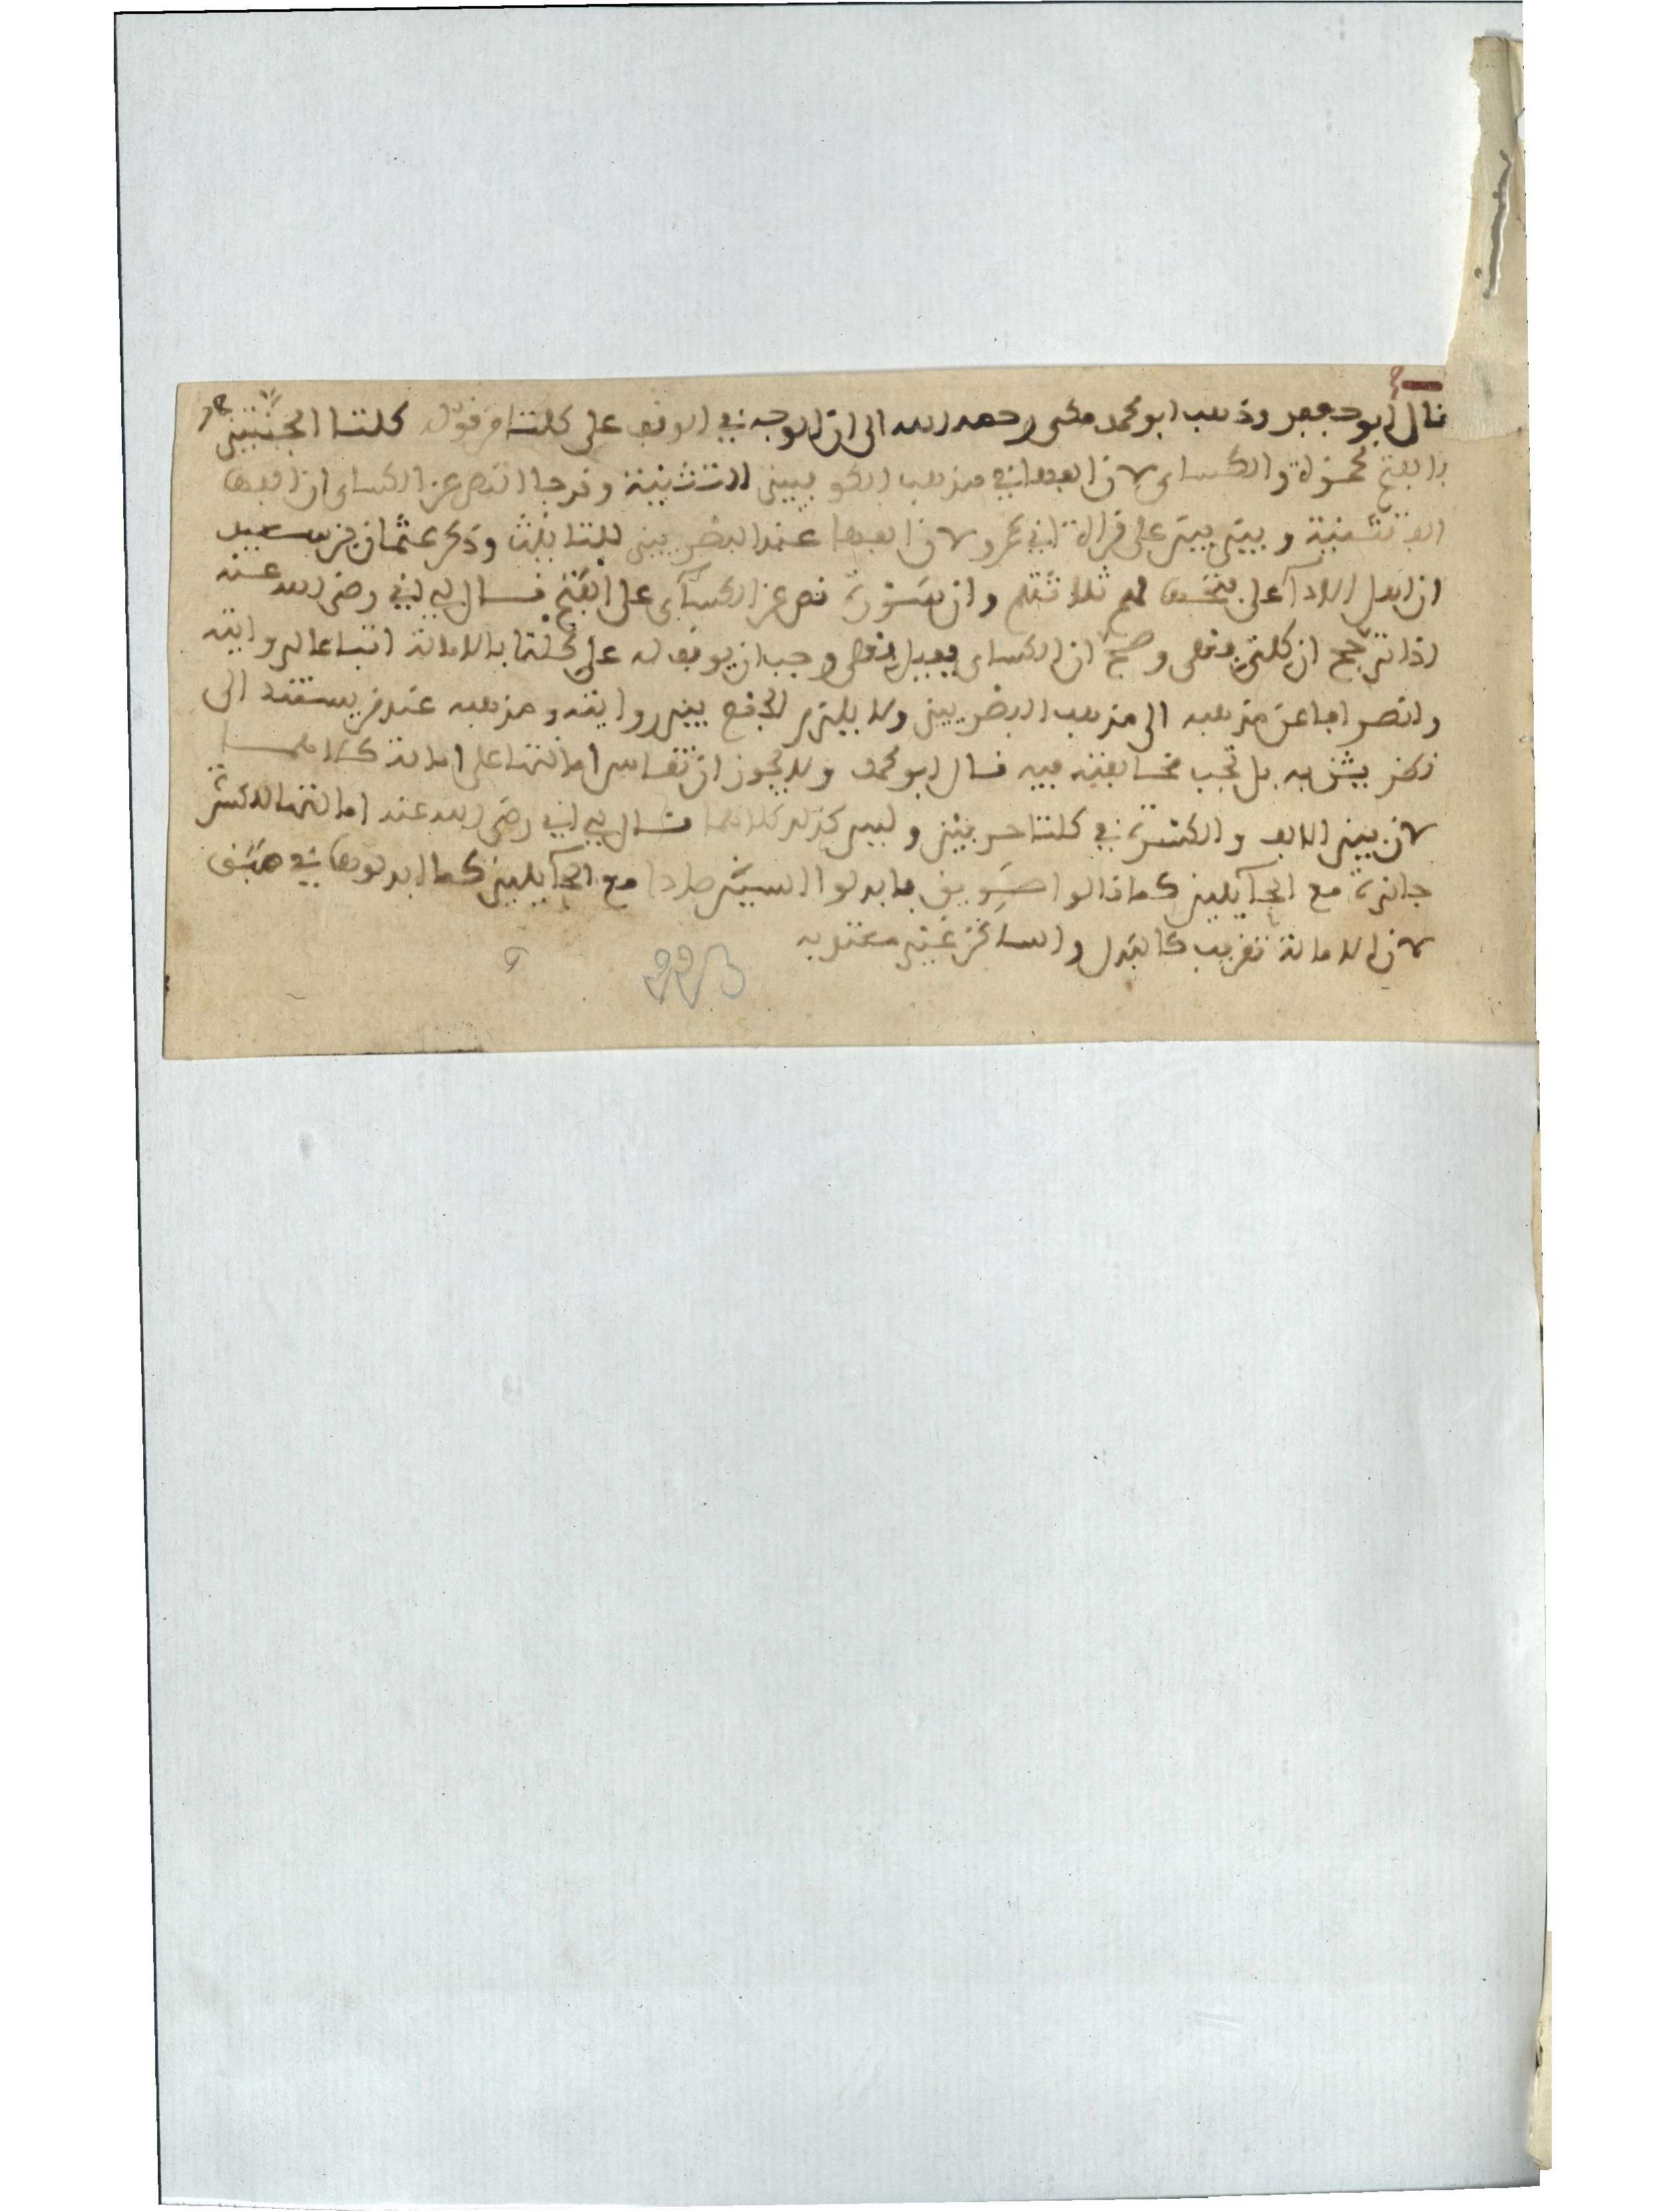 قال ابو جعفر وذهب ابو محمد مكى رحمه الله الى ان الوجه في الوقف على كلتا من قوله كلتا الجنتين
بالفتح لحمزة والكساى لان الفها في مذهب الكوفيين الف تثنية وقد جا النص عن الكساى ان الفها
الف تثنية وبين بين على قراة ابي عمرو لان الفها عند البصريين وذكر عثمان بن سعيد
ان اهل الادا على وان سورة نص عن الكساى على الفتح قال لي ابي رضى الله عنه
اذا ترجح ان كلتى فعلى وصح ان الكساى يميل فعلى وجب ان يوقف له على كلتا بالامالة اتباعا لروايته
وانصرافا عن مذهبه الى مذهب البصريين ولا يلزم الجمع بين روايته ومذهبه عند من يستند الى
ركن يثق به بل تجب مخالفته فيه قال ابو محمد ولا يجوز ان تقاس امالتها على امالة كلاهما
لان بين الالف والكسرة في كلتا حرفين وليس كذلك كلاهما قال لي ابي رضى الله عنه امالتها للكسرة
جائزة مع الحايلين كما قالوا صويق فابدلوا السين صادا مع الحايلين كما ابدلوها في
لان الامالة تقريب كالبدل والساكن غير معتد به
223